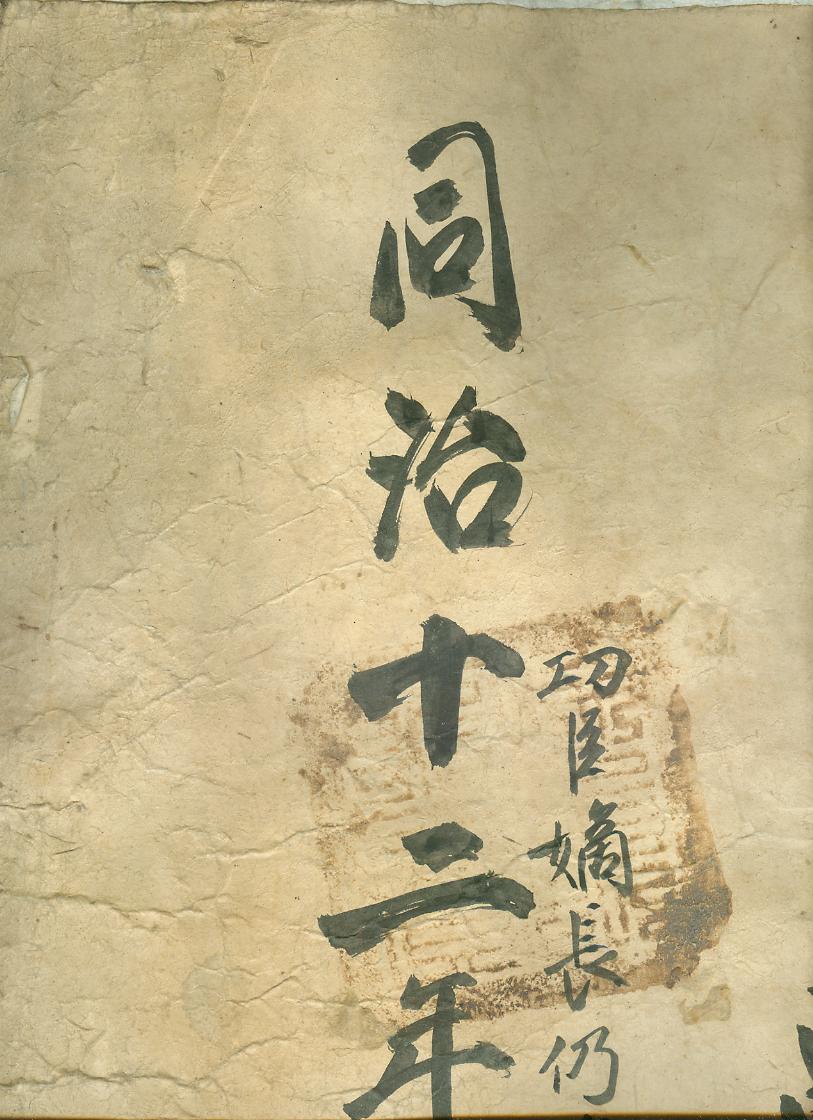 功臣嫡長仍
同治十二年